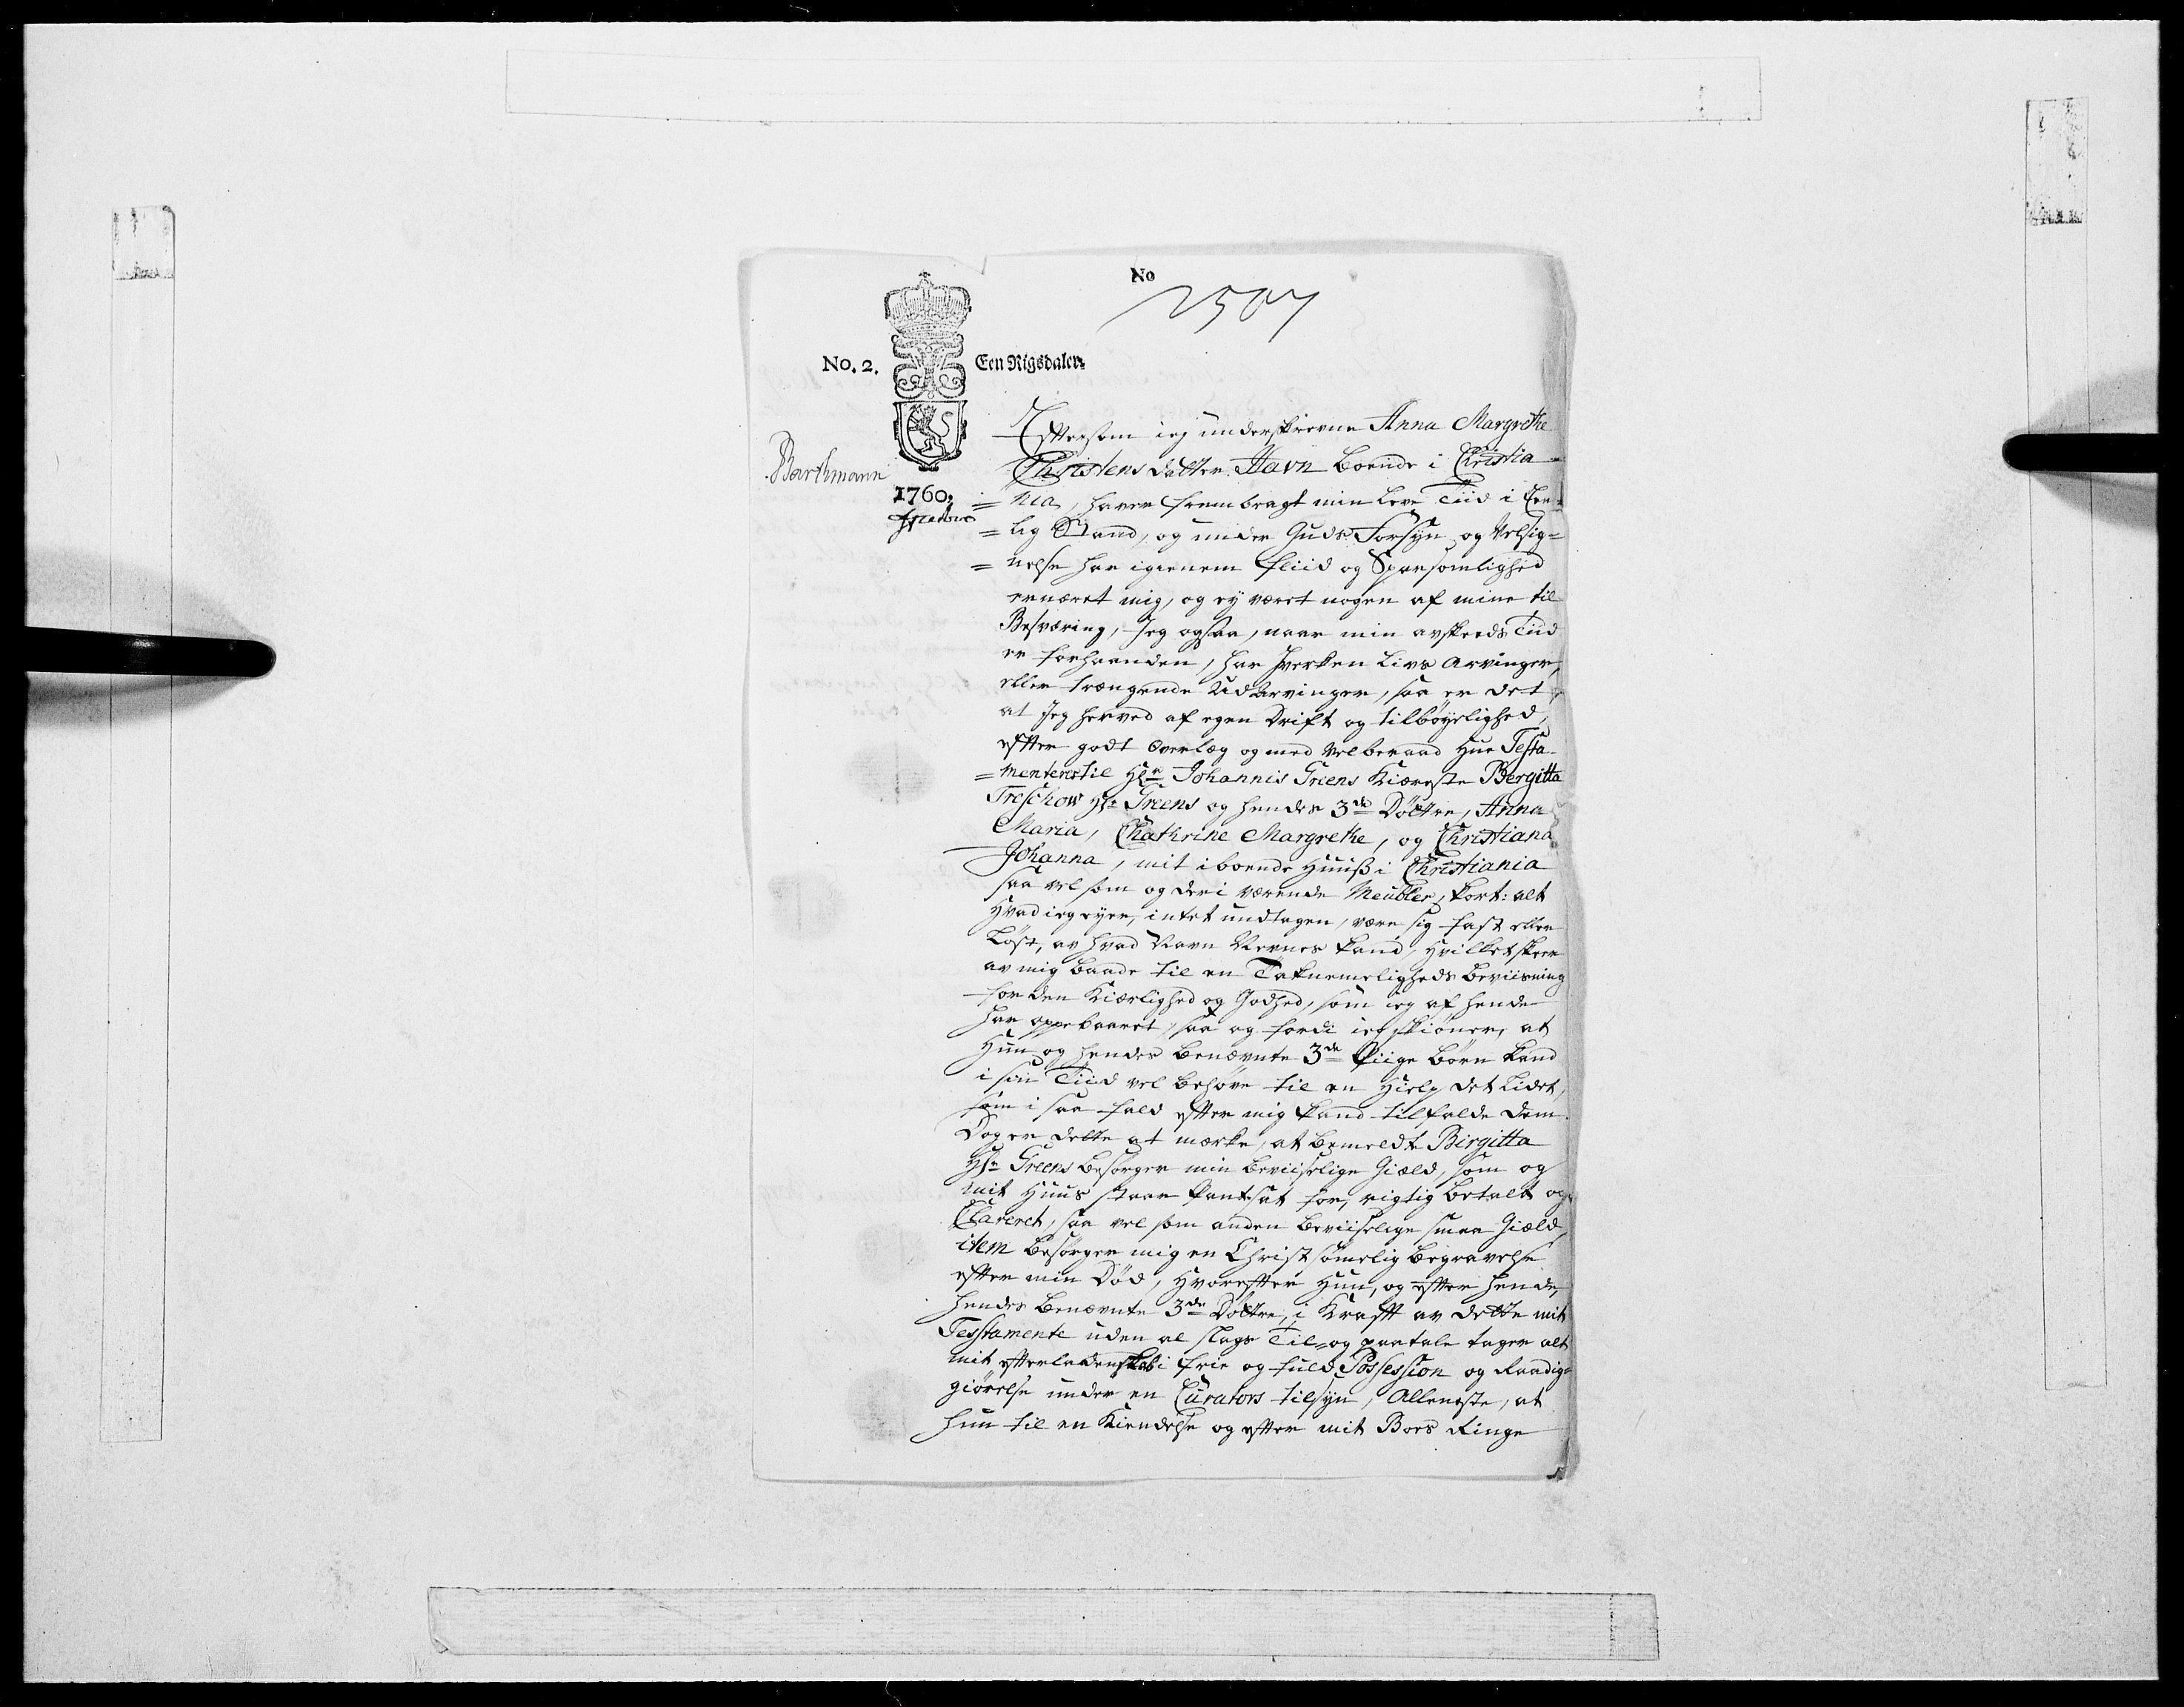 No
2507
No. 2.
Een Rigsdaler.
Barthmann
1760.
Eftersom ieg underskrevne Anna Margrethe
Christens datter Havn boende i Christia-
=nia, haver frembragt min leve Tiid i Een-
=lig Stand, og under Guds Forsyn og Velsig=
=nelse har igienem fliid og Sparsomlighed
ernæret mig, og ey været nogen af mine til
Besværing, Jeg ogsaa, naar min avskeeds Tiid
er forhaanden, har hverken Livs Arvinger,
eller trængende Udarvinger, saa er det
at Jeg herved af egen Drift og tilbøyelighed,
efter godt Overlæg og med velberaad Hue Testa-
=menterer til Hr Johannis Greens Kiæreste Bergitta
Treschow Sl. Greens og hendes 3de Døttre, Anna
Maria, Chathrine Margrethe, og Christiana
Johanna, mit iboende Huuss i Christiania
saa vel som og deri værende Meubler, kort: alt
hvad ieg eyer, intet undtagen, være sig fast eller
Løst, av hvad Navn Nevnes kand, hvilket skeer
av mig baade til en Taknemeligheds beviisning
for den Kiærlighed og Godhed, som ieg af hende
har oppebaaret, saa og fordi ieg skiønner, at
Hun og hendes benævnte 3de Piige børn kand
i sin Tiid vel behøve til en Hielp det Lidet,
som i saa fald efter mig kand tilfalde dem.
Dog er dette at mærke, at bemeldte Birgitta
Sl. Greens besørger min beviislige Giæld, som og
mit Huus staar Pantsat for, rigtig betalt og
Clareret, saa vel som anden beviislige smaa Giæld,
item besørger mig en Christsømelig begravelse
efter min Død, hvorefter Hun, og efter hende,
hendes benævnte 3de Døttre, i Krafft av dette mit
Testamente uden al slags Til- og paatale tager alt
mit efterladenskab i frie og fuld Possession og Raadig=
giørelse under en Curators tilsyn, Alleneste, at
hun til en Kiendelse og efter mit Boes Ringe